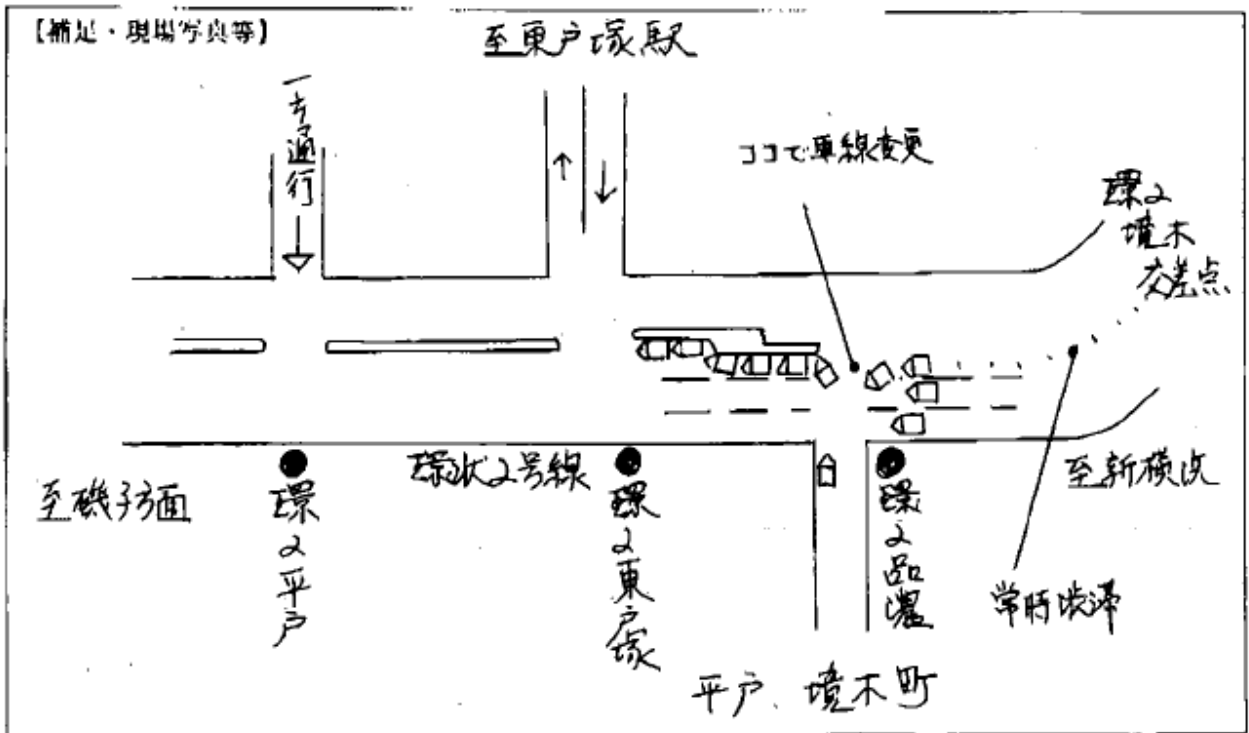 【補足・現場写真等】
至東戸塚駅
一方通行
ココで車線変更
環2
境木
交差点
至磯子方面
環2平戸
環状2号線
環2東戸塚
環2品濃
至新横浜
常時渋滞
平戸、境木町